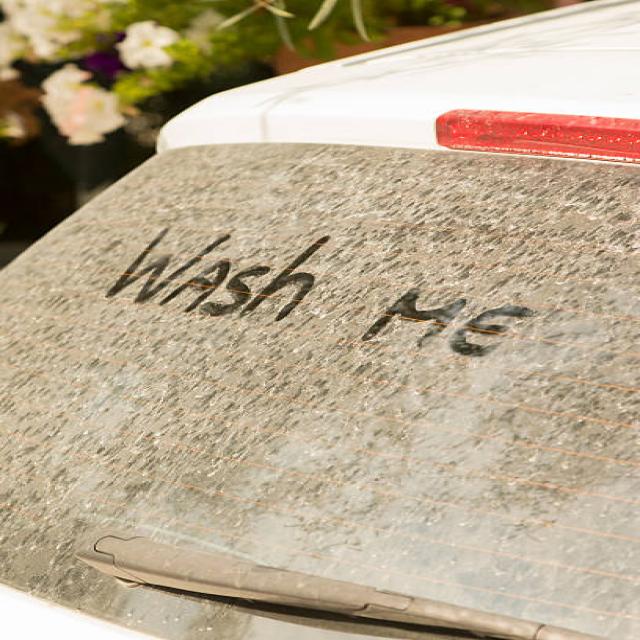 Wash Me